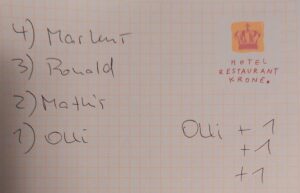 4) Markus
3) Ronald
2) Mathis
1) Olli
HOTEL
RESTAURANT
KRONE.
Olli + 1
+ 1
+ 1